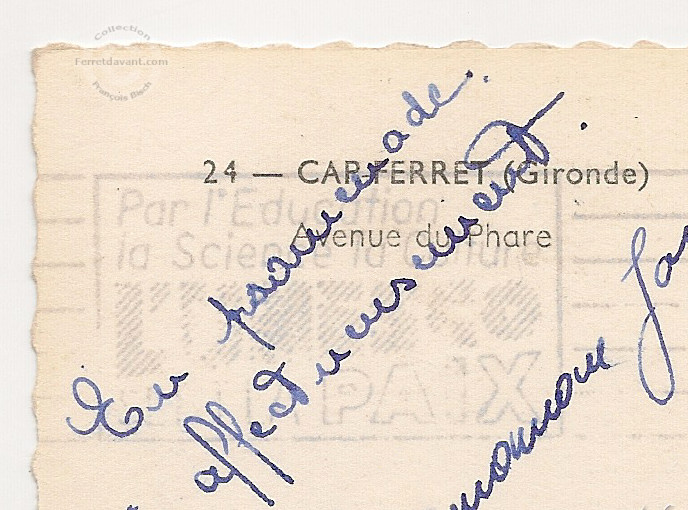 Collection
Ferretdavant.com
François Bisch
24 — CAP-FERRET (Gironde)
Avenue du Phare
Par l'Education
la Science la Culture
UNESCO
PAIX
En promenade.
affectueusement.